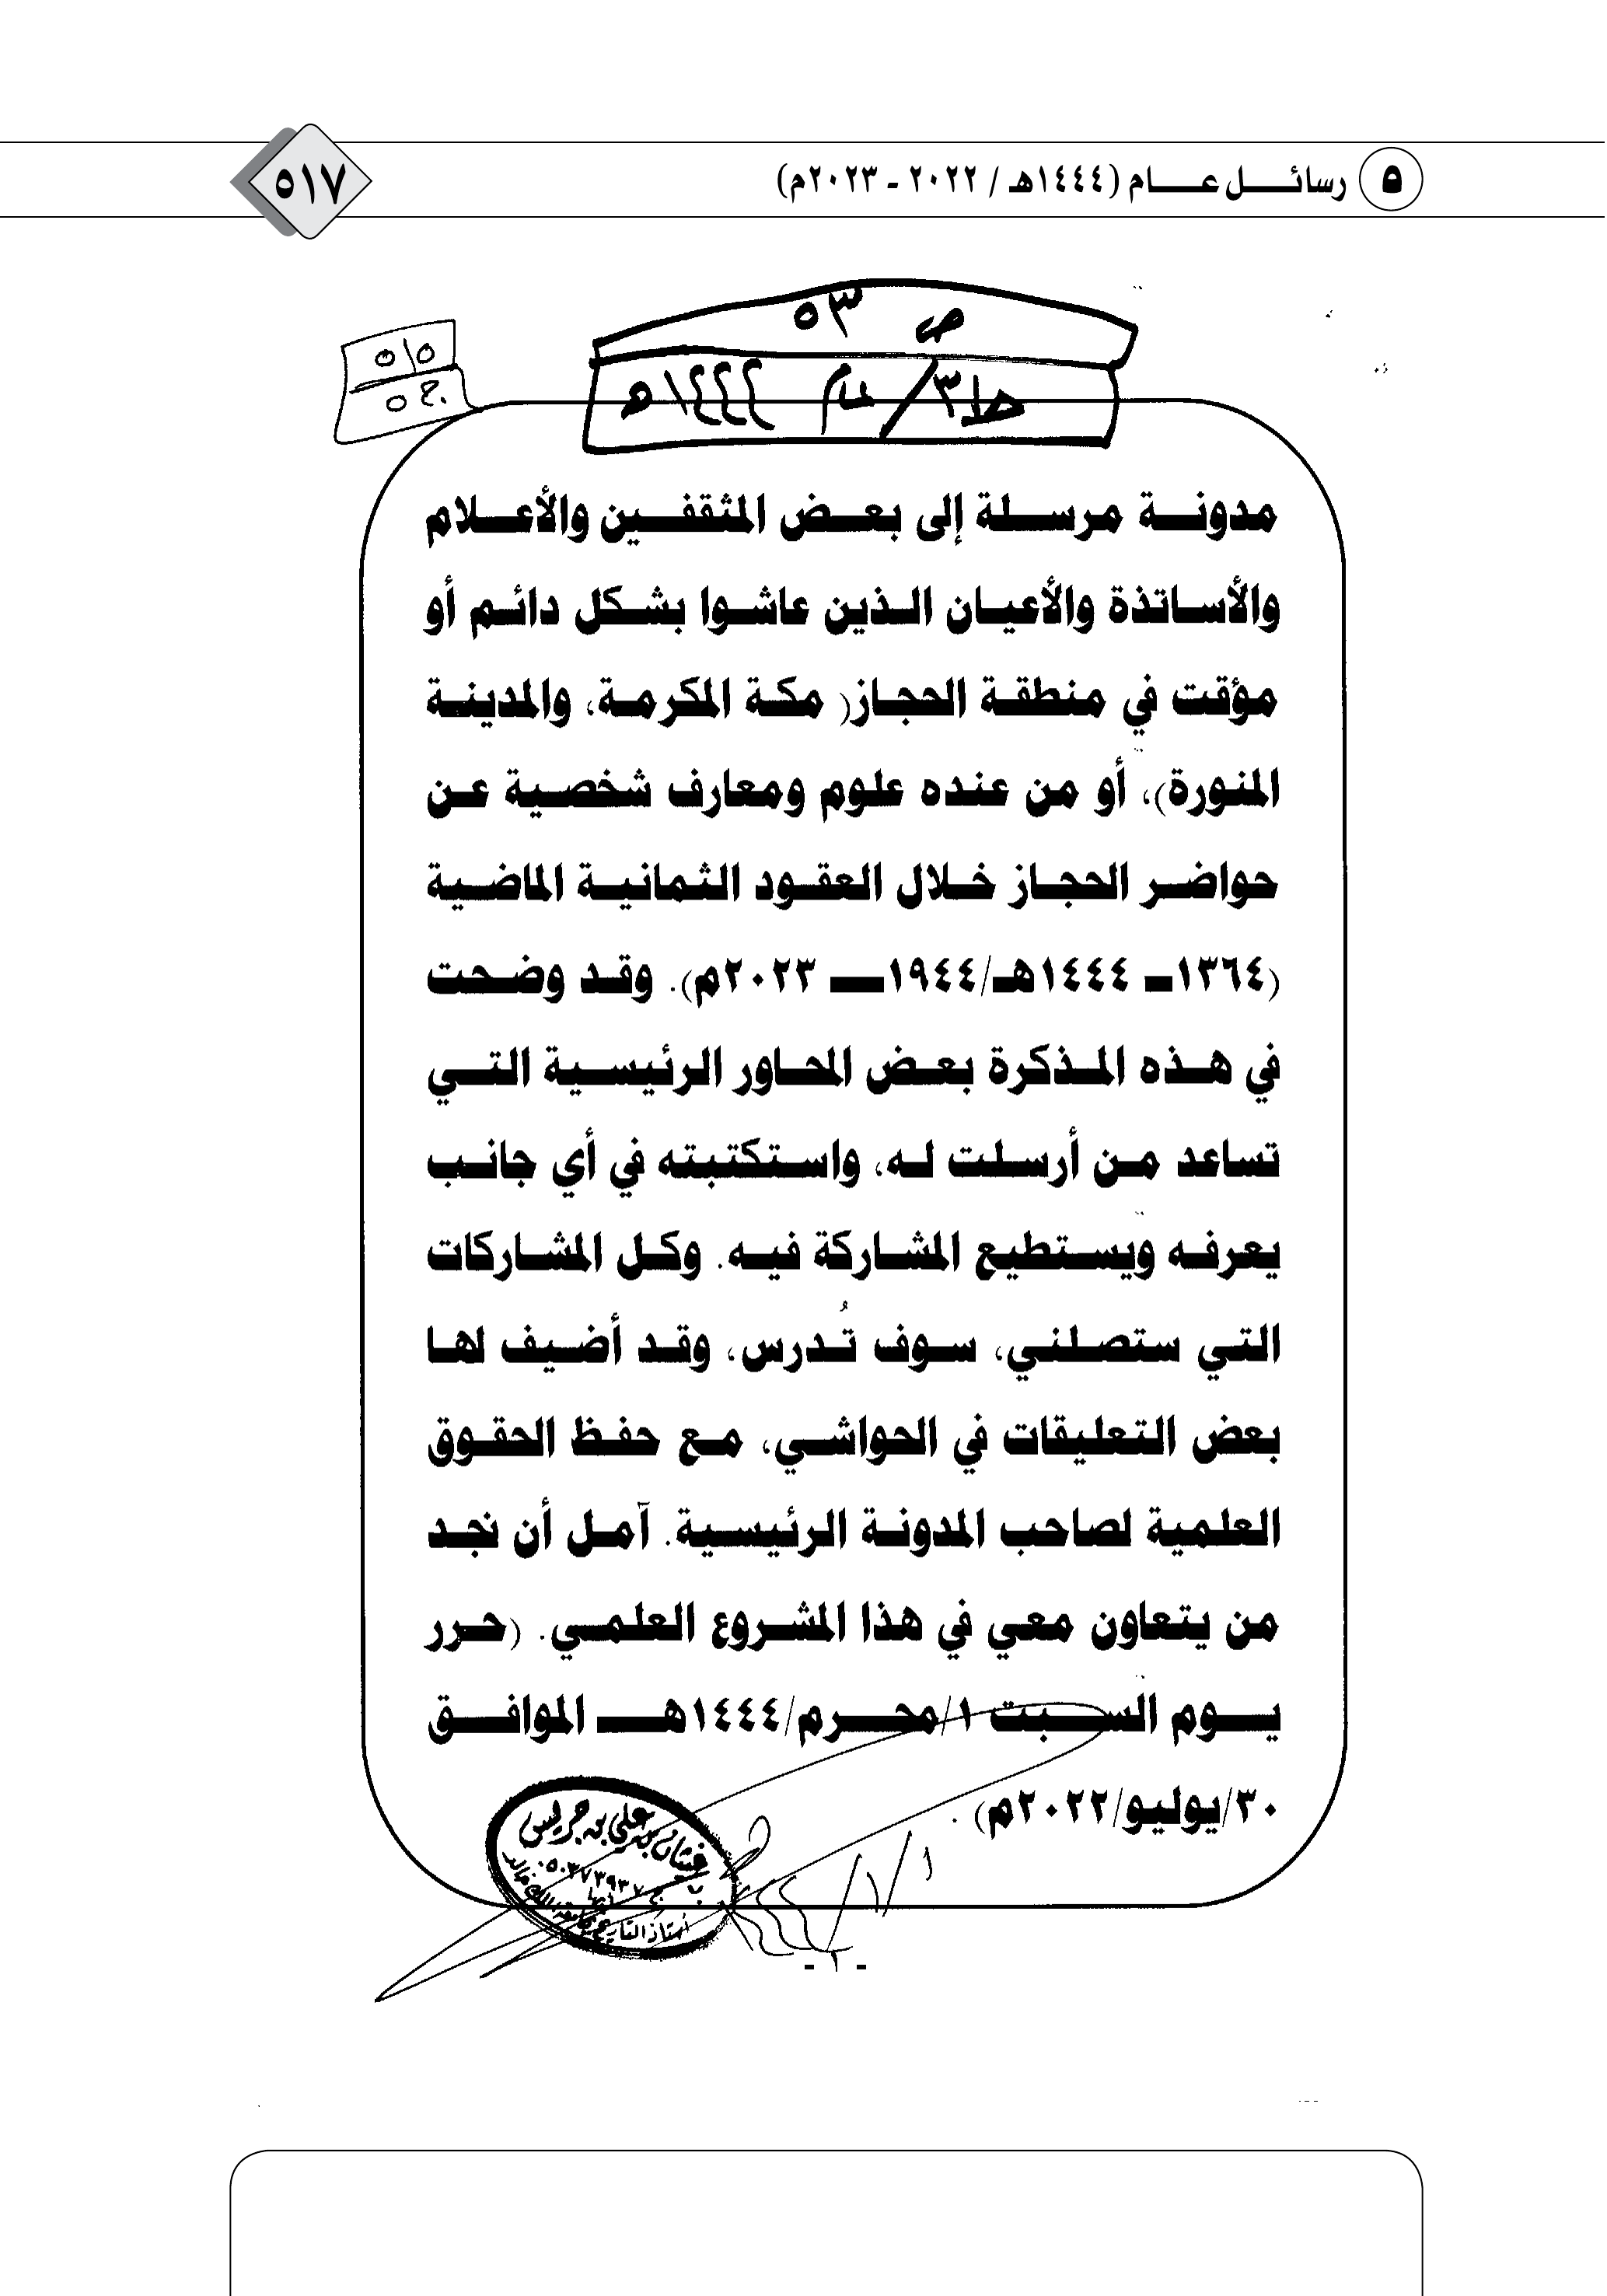 ٥ رسائل عام (١٤٤٤هـ / ٢٠٢٢ - ٢٠٢٣م)
٥١٧
ص ٥٣
ط٣/ عام ١٤٤٤هـ
٥١٥
ج ٥
مدونة مرسلة إلى بعض المثقفين والأعلام
والأساتذة والأعيان الذين عاشوا بشكل دائم أو
مؤقت في منطقة الحجاز( مكة المكرمة، والمدينة
المنورة)، أو من عنده علوم ومعارف شخصية عن
حواضر الحجاز خلال العقود الثمانية الماضية
(١٣٦٤ـ ١٤٤٤هـ/١٩٤٤ـ ٢٠٢٣م). وقد وضحت
في هذه المذكرة بعض المحاور الرئيسية التي
تساعد من أرسلت له، واستكتبته في أي جانب
يعرفه ويستطيع المشاركة فيه. وكل المشاركات
التي ستصلني، سوف تُدرس، وقد أضيف لها
بعض التعليقات في الحواشي، مع حفظ الحقوق
العلمية لصاحب المدونة الرئيسية. آمل أن نجد
من يتعاون معي في هذا المشروع العلمي. (حرر
يوم السبت ١/محرم/١٤٤٤هـ الموافق
٣٠/يوليو/٢٠٢٢م) .
غيثان بن علي بن جريس
٠٥٠٣٧٣٩٣٧
أستاذ التاريخ بجامعة الملك خالد
١/١/
- ١ -